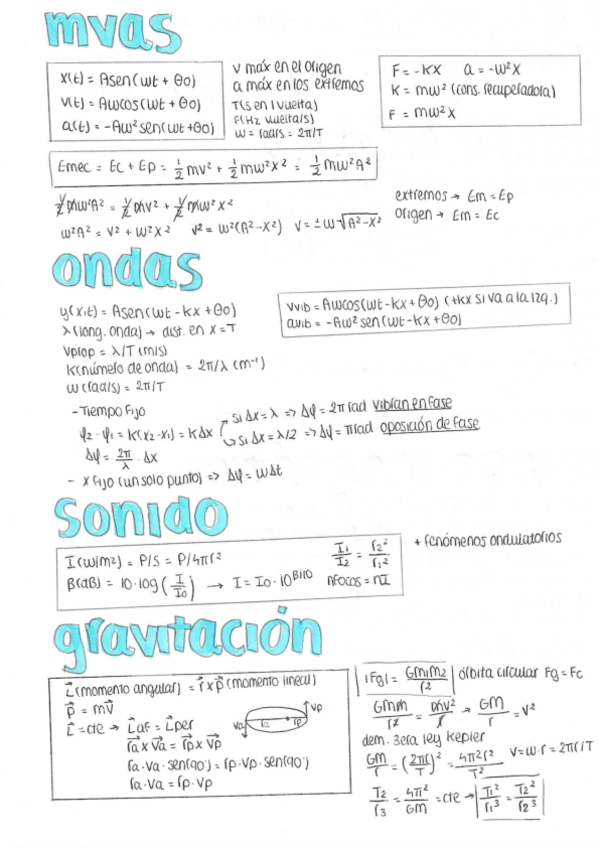 mvas
x(t) = Asen(ωt + θ0)
v(t) = Aωcos(ωt + θ0)
a(t) = -Aω² sen(ωt + θ0)
v máx en el origen
a máx en los extremos
T(s en 1 vuelta)
F(Hz vuelta/s)
ω = rad/s = 2π/T
F = -Kx a = -ω²x
K = mω² (cons. recuperadora)
F = mω²x
Emec = Ec + Ep = 1/2 mv² + 1/2 mω²x² = 1/2 mω²A²
1/2 mω²A² = 1/2 mv² + 1/2 mω²x²
ω²A² = v² + ω²x² v² = ω²(A²-x²) v = ±ω√A²-x²
extremos → Em = Ep
origen → Em = Ec
ondas
y(x,t) = Asen(ωt - kx + θ0)
λ(long. onda) → dist. en x = T
vprop = λ/T (m/s)
k(número de onda) = 2π/λ (m⁻¹)
ω(rad/s) = 2π/T
vvib = Aωcos(ωt - kx + θ0) (+kx si va a la izq.)
avib = -Aω² sen(ωt - kx + θ0)
- Tiempo fijo
φ2 - φ1 = k(x2 - x1) = kΔx
si Δx = λ => Δφ = 2π rad vibran en fase
si Δx = λ/2 => Δφ = π rad oposición de fase
Δφ = 2π/λ · Δx
- x fijo (un solo punto) => Δφ = ωΔt
sonido
I(W/m2) = P/S = P/4πr²
β(dB) = 10·log(I/I0) → I = I0·10^β/10
I1/I2 = r2²/r1²
nfocos = nI
+ fenómenos ondulatorios
gravitación
L(momento angular) = r x p (momento lineal)
p = mv
L = cte → Laf = Lper
ra x va = rp x vp
ra·va·sen(90°) = rp·vp·sen(90°)
ra·va = rp·vp
va ra rp vp
|Fg| = Gm1m2/r² órbita circular Fg = Fc
GMm/r² = mv²/r → GM/r = v²
dem. 3era ley kepler
GM/r = (2πr/T)² = 4π²r²/T² v = ω·r = 2πr/T
T2/r3 = 4π²/GM = cte → T1²/r1³ = T2²/r2³